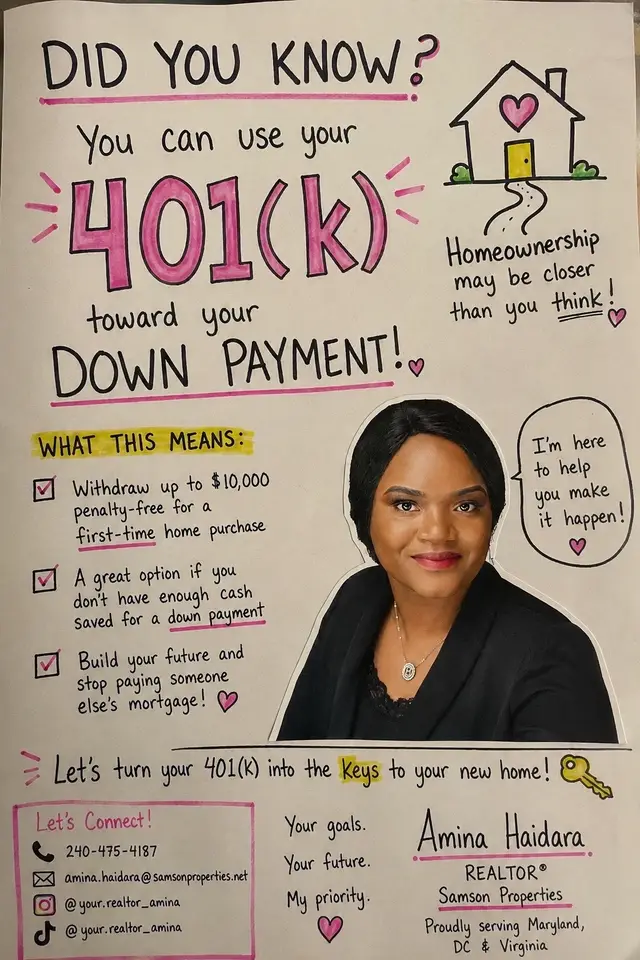 DID YOU KNOW?
You can use your
401(k)
toward your
DOWN PAYMENT!
Homeownership
may be closer
than you think!
WHAT THIS MEANS:
Withdraw up to $10,000
penalty-free for a
first-time home purchase
A great option if you
don't have enough cash
saved for a down payment
Build your future and
stop paying someone
else's mortgage!
I'm here
to help
you make
it happen!
Let's turn your 401(k) into the keys to your new home!
Let's Connect!
240-475-4187
amina.haidara@samsonproperties.net
@your.realtor_amina
@your.realtor_amina
Your goals.
Your future.
My priority.
Amina Haidara
REALTOR®
Samson Properties
Proudly serving Maryland,
DC & Virginia